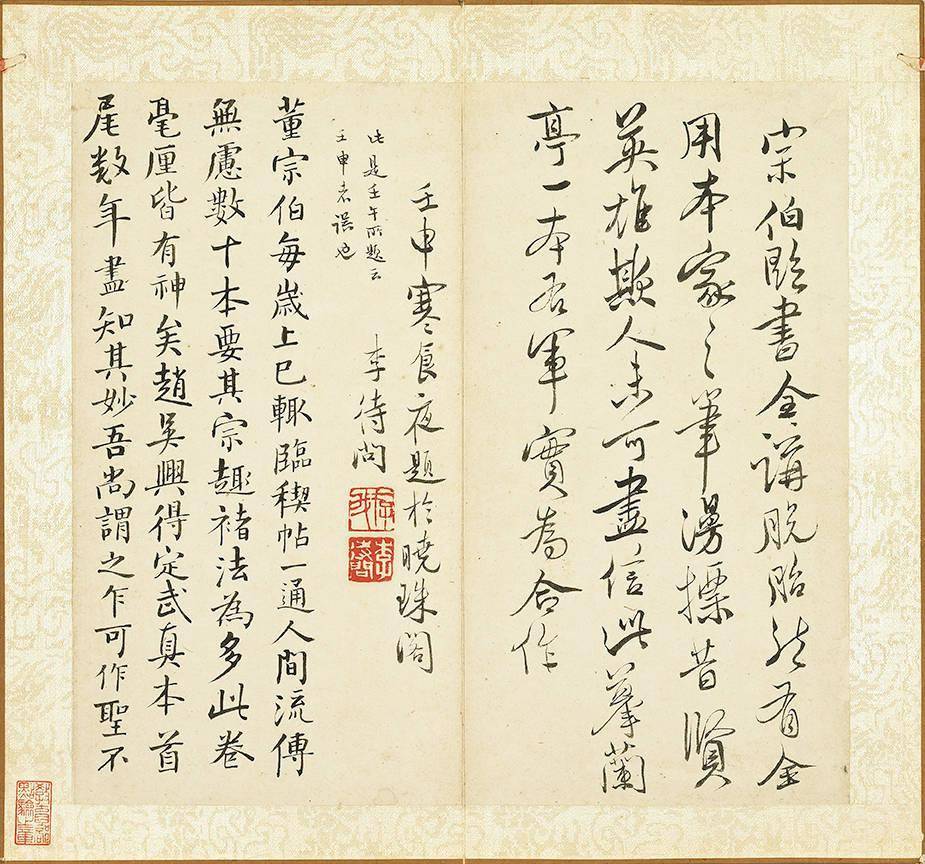 宗伯臨書全講脫胎然有全
用本家之筆漫摽昔賢
英雄欺人未可盡信此摹蘭
亭一本右軍實為合作
壬申寒食夜題於曉珠閣
此是壬午所題云
壬申者誤也
李待問
董宗伯每歲上巳輙臨稧帖一通人間流傳
無慮數十本要其宗趣褚法為多此卷
毫厘皆有神矣趙吳興得定武真本首
尾数年盡知其妙吾尚謂之乍可作聖不